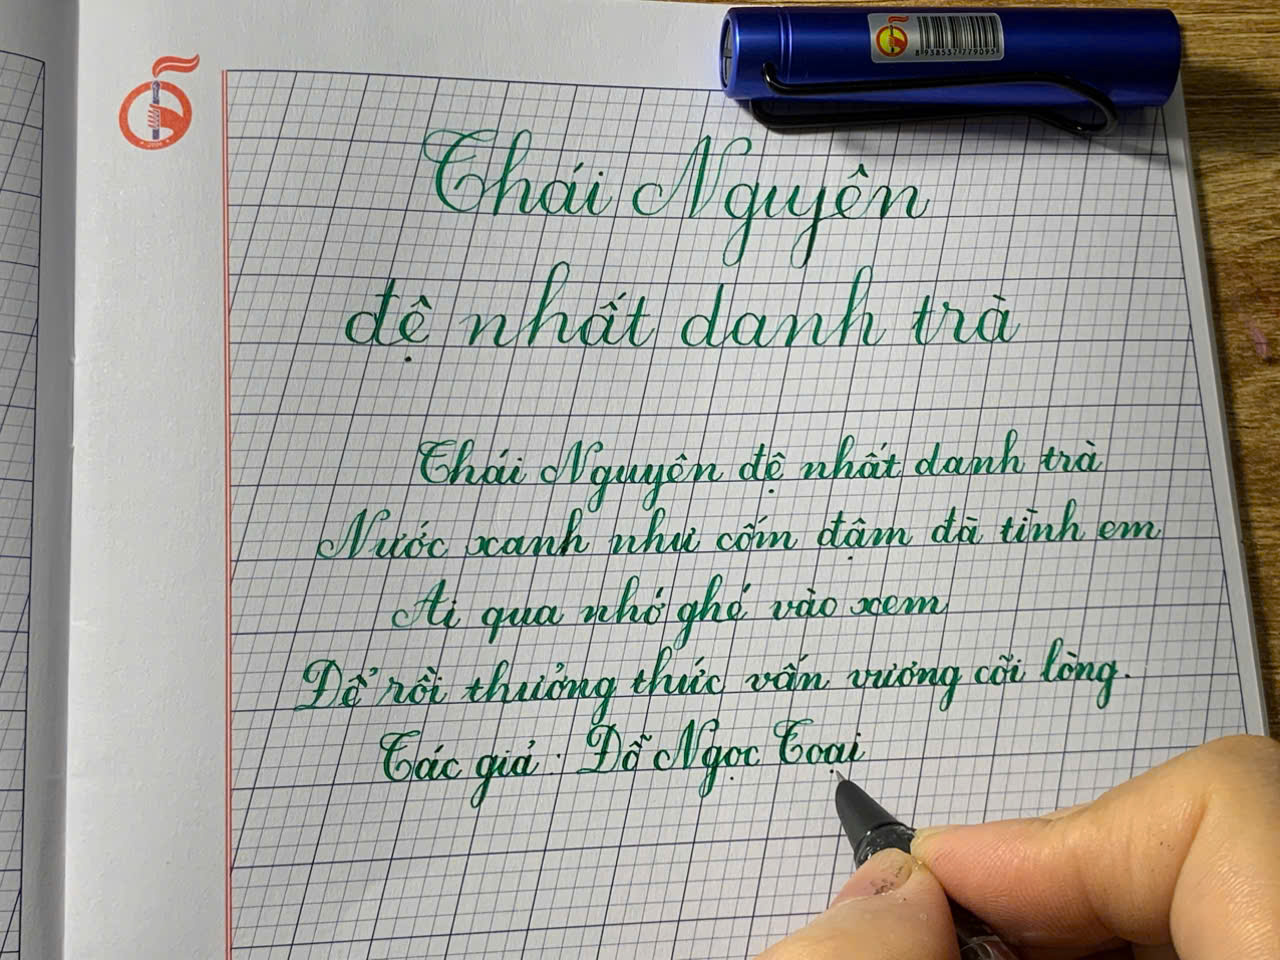 8938537779095
Thái Nguyên
đệ nhất danh trà
Thái Nguyên đệ nhất danh trà
Nước xanh như cốm đậm đà tình em
Ai qua nhớ ghé vào xem
Để rồi thưởng thức vấn vương cõi lòng.
Tác giả: Đỗ Ngọc Toại